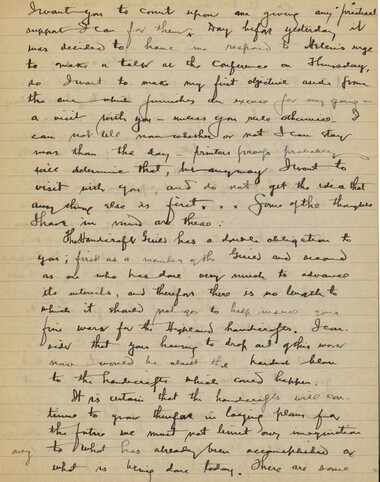 I want you to count upon me giving any practical
support I can for them. Day before yesterday it
was decided to have me respond to Helen's urge
to make a talk at the Conference on Thursday,
so I want to make my first objective aside from
the one which furnishes an excuse for my going on
a visit with you - unless you rule otherwise. I
can not tell now whether or not I can stay
more than the day - printers proofs probably
will determine that, but anyway I want to
visit with you, and do not get the idea that
any thing else is first... Some of the thoughts
I have in mind are these:
The Handicraft Guild has a double obligation to
you; first as a member of the Guild and second
as one who has done very much to advance
its interests, and therefore there is no length to
which it should not go to help insure your
fine work for the Highland handicrafts. I con-
sider that your having to drop out of this work
now would be about the hardest blow
to the handicrafts which could happen.
It is certain that the handicrafts will con-
tinue to grow therefore in laying plans for
the future we must not limit our imagination
to what has already been accomplished or
what is being done today. There are some